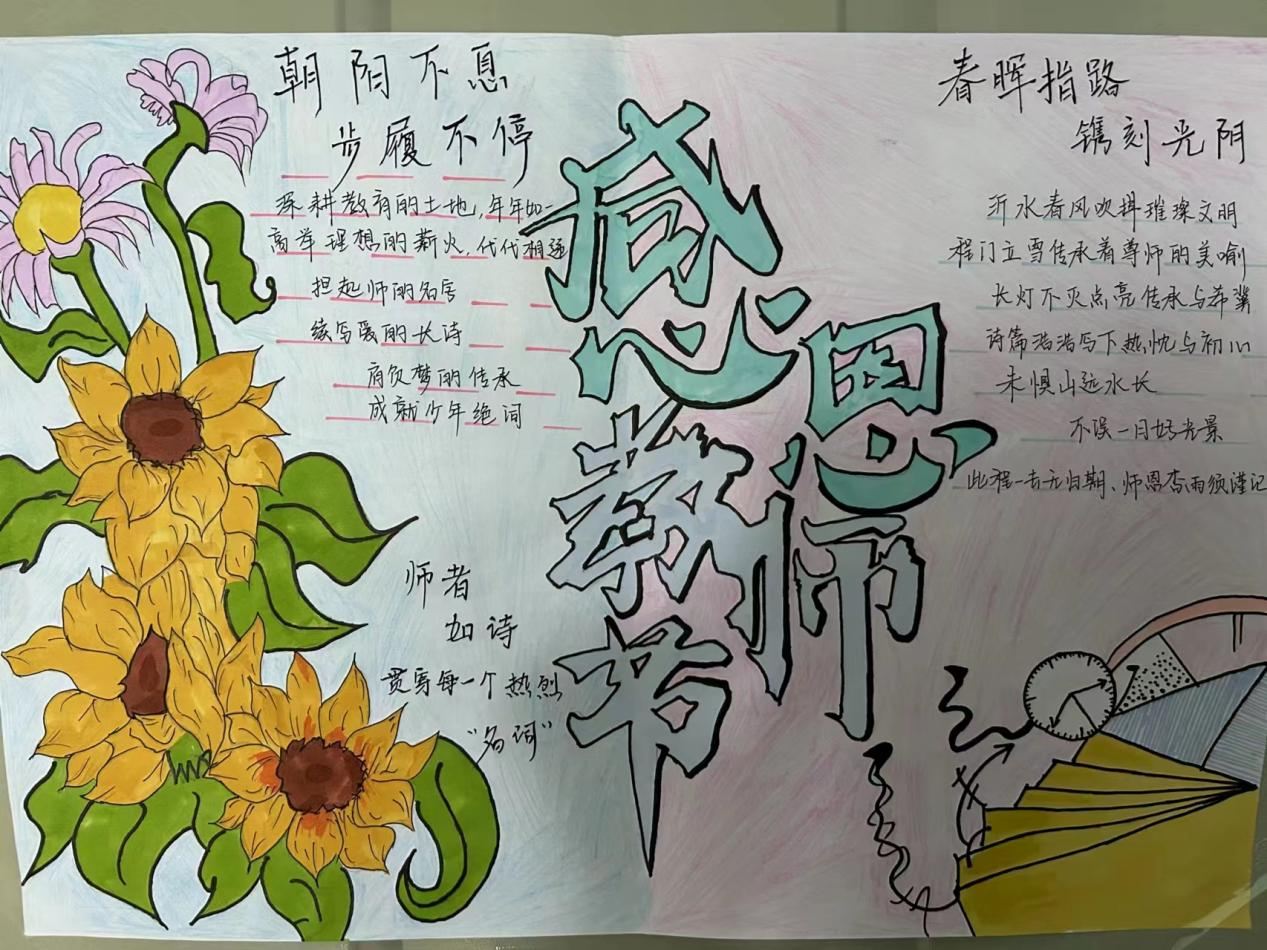 朝阳不息
步履不停
深耕教育的土地,年年如一
高举理想的薪火,代代相递
担起师的名字
续写爱的长诗
肩负梦的传承
成就少年绝词
师者
如诗
贯穿每一个热烈
“名词”
感恩
教师
节
春晖指路
镌刻光阴
沂水春风吹拂璀璨文明
程门立雪传承着尊师的美喻
长灯不灭点亮传承与希冀
诗篇浩浩写下热忱与初心
未惧山远水长
不误一月好光景
此程一去无归期、师恩杏雨须谨记